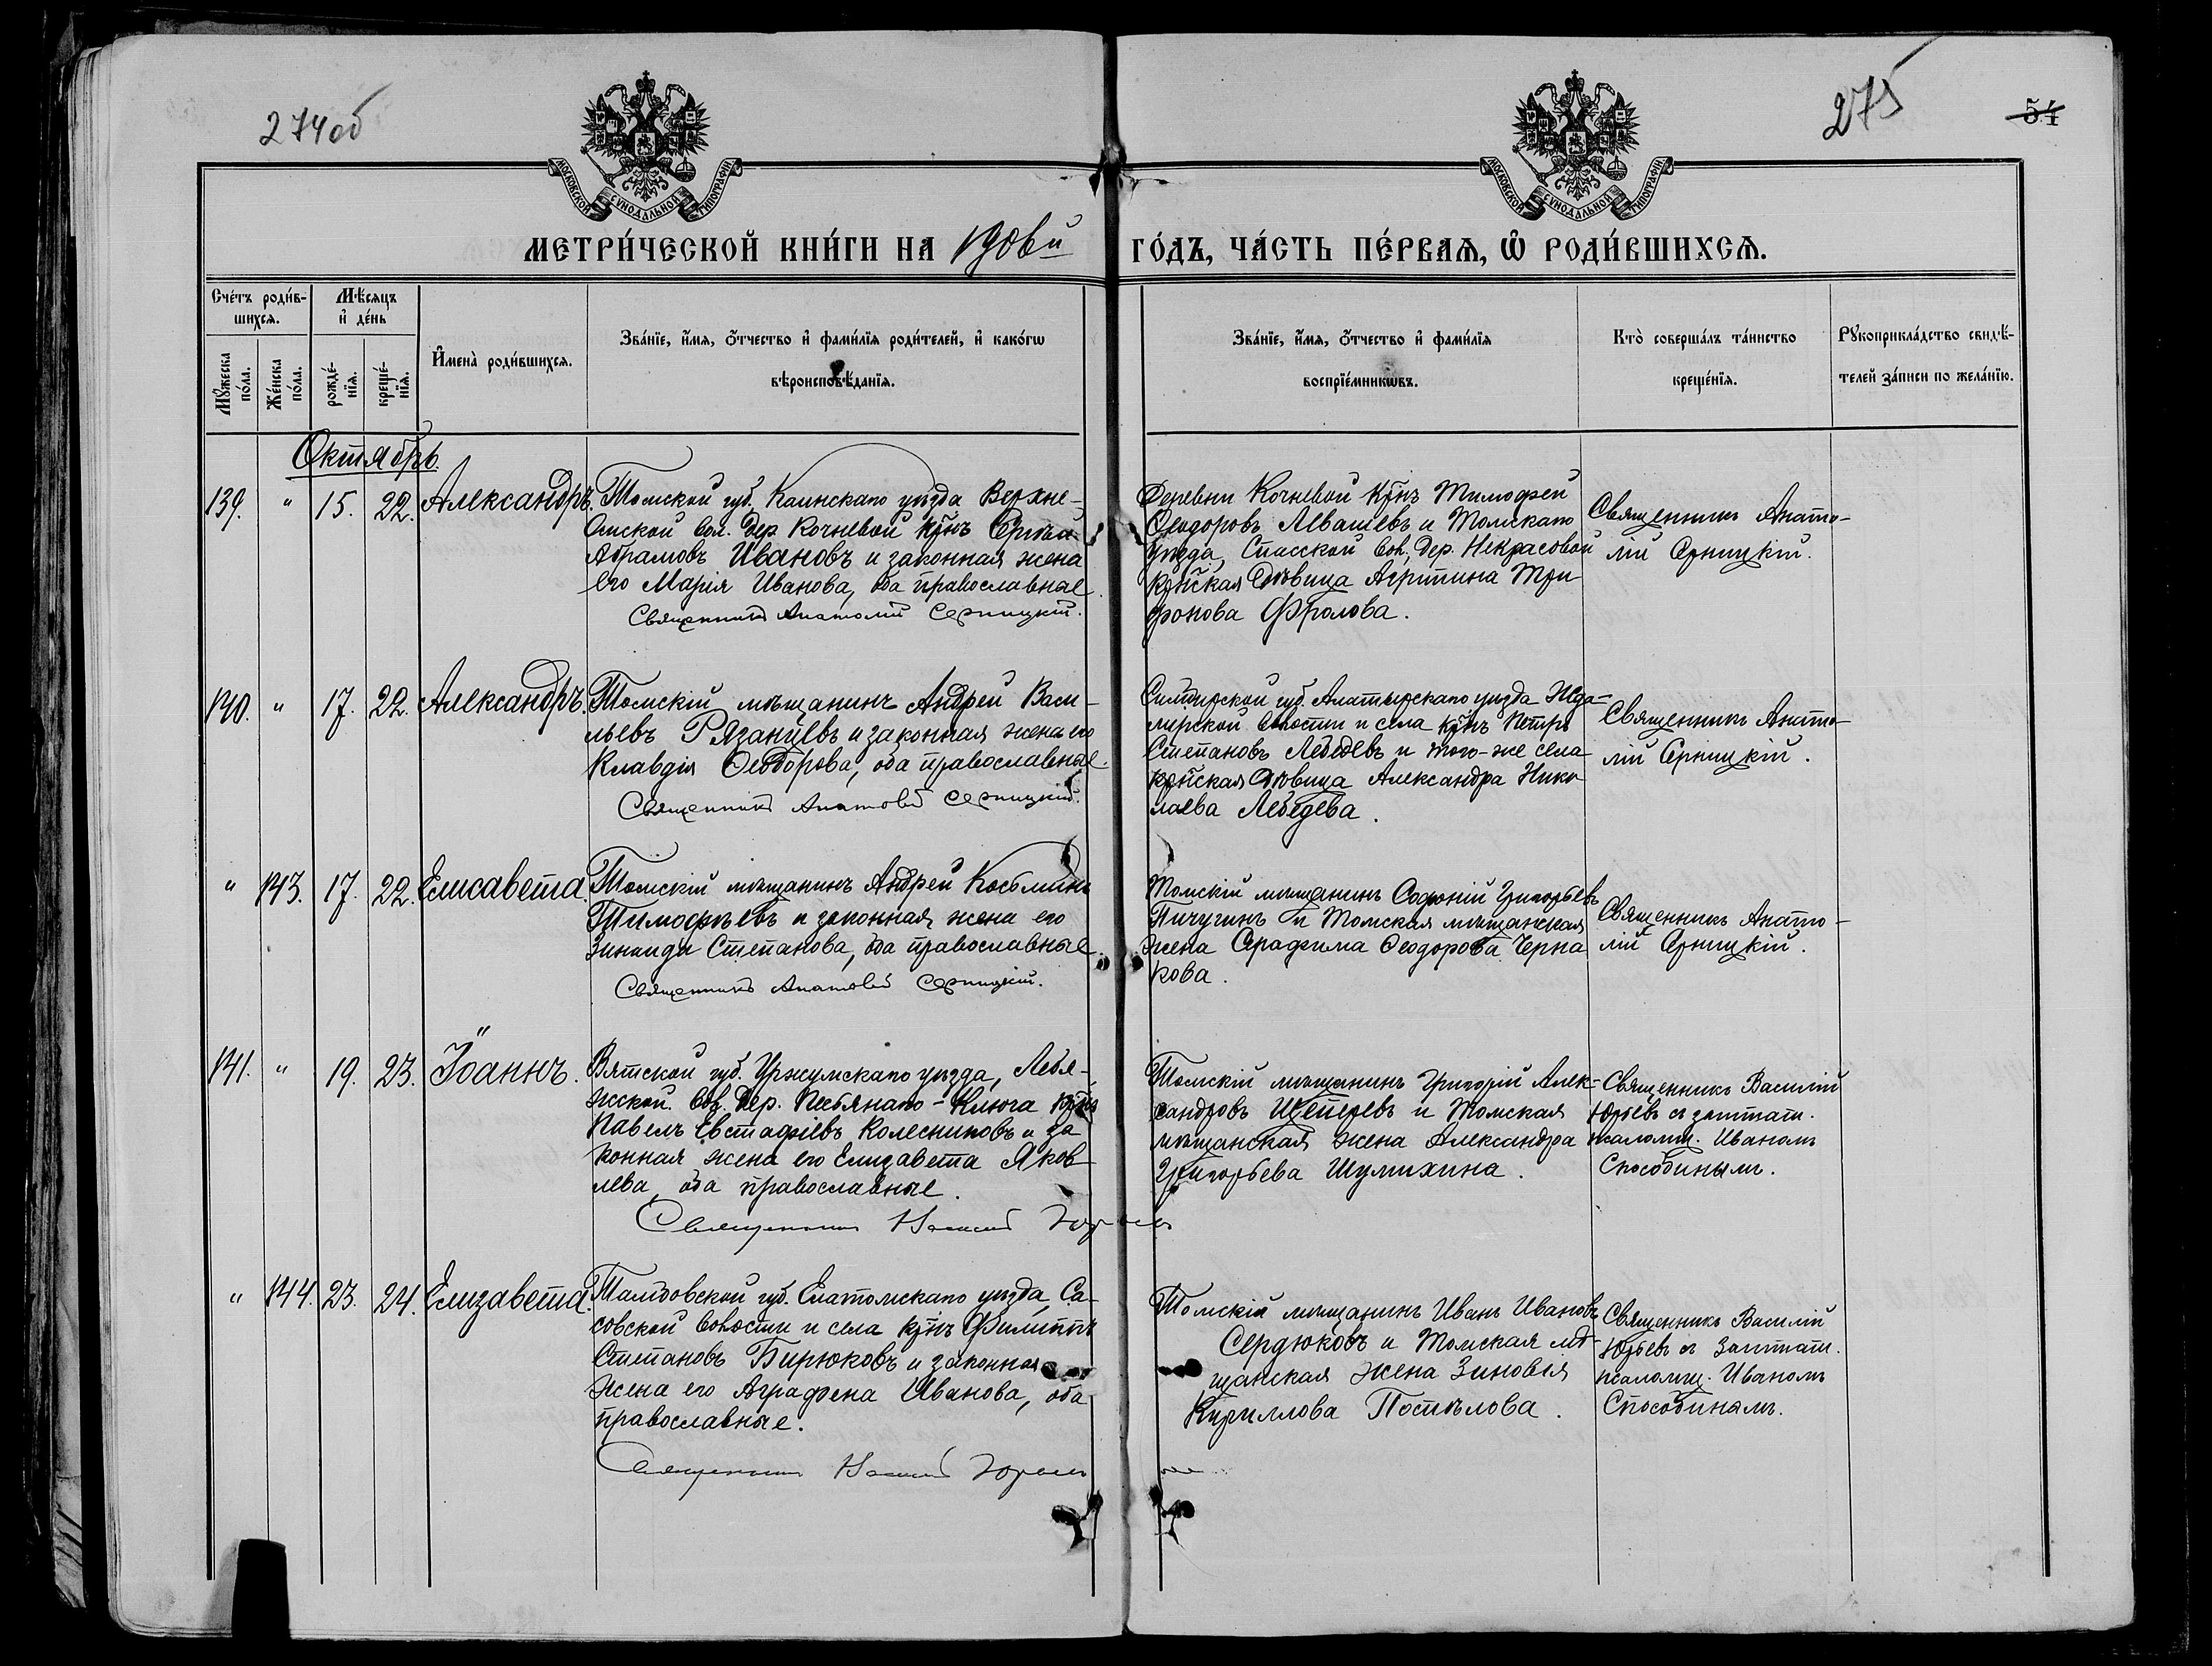 274об
275
54
МОСКОВСКОЙ СѴНОДАЛЬНОЙ ТИПОГРАФІИ
МОСКОВСКОЙ СѴНОДАЛЬНОЙ ТИПОГРАФІИ
МЕТРИ́ЧЕСКОЙ КНИ́ГИ НА 1908й ГО́ДЪ, ЧА́СТЬ ПЕ́РВАѦ, Ѡ҆ РОДИ́ВШИХСѦ.
Сче́тъ роди́в-
шихсѧ.
Мꙋ́жеска по́ла.
Же́нска по́ла.
Мѣ́сѧцъ
и҆ де́нь
рожде́-
нїѧ.
креще́-
нїѧ.
И҆мена̀ роди́вшихсѧ.
Зва́нїе, и҆́мѧ, ѻ҆́тчество и҆ фами́лїѧ роди́телей, и҆ како́гѡ
вѣроисповѣ́данїѧ.
Зва́нїе, и҆́мѧ, ѻ҆́тчество и҆ фами́лїѧ
воспрїе́мникѡвъ.
Кто̀ соверша́лъ та́инство
креще́нїѧ.
Рꙋкоприкла́дство свидѣ́-
телей за́писи по жела́нїю.
Октябрь.
139. " 15. 22. Александръ.
Томской губ. Каинскаго уѣзда Верхне-
Омской вол. дер. Кочневой кр̃нъ Сергѣй
Абрамовъ Ивановъ и законная жена
его Марія Иванова, оба православные.
Священникъ Анатолій Серницкій.
Деревни Кочневой кр̃нъ Тимофей
Ѳеодоровъ Левашевъ и Томскаго
уѣзда, Спасской вол., дер. Некрасовой
кр̃нская дѣвица Агриппина Три
фонова Фролова.
Священникъ Анато-
лій Серницкій.
140. " 17. 22. Александръ.
Томскій мѣщанинъ Андрей Васи-
льевъ Рязанцевъ и законная жена его
Клавдія Ѳеодорова, оба православные.
Священникъ Анатолій Серницкій.
Симбирской губ. Алатырскаго уѣзда Жда-
мирской волости и села кр̃нъ Петръ
Степановъ Лебедевъ и того-же села
кр̃нская дѣвица Александра Нико
лаева Лебедева.
Священникъ Анато-
лій Серницкій.
" 143. 17. 22. Елисавета.
Томскій мѣщанинъ Андрей Косьминъ
Тимофѣевъ и законная жена его
Зинаида Степанова, оба православные.
Священникъ Анатолій Серницкій.
Томскій мѣщанинъ Софоній Григорьевъ
Пичугинъ и Томская мѣщанская
жена Серафима Ѳеодорова Черна
кова.
Священникъ Анато-
лій Серницкій.
141. " 19. 23. Іоаннъ.
Вятской губ. Уржумскаго уѣзда, Лебя-
жской вол. дер. Изѣянаго-Ключа кр̃нъ
Павелъ Евстафіевъ Колесниковъ и за
конная жена его Елизавета Яков
лева, оба православные.
Священникъ Василій Юрьевъ
Томскій мѣщанинъ Григорій Алек-
сандровъ Щеперевъ и Томская
мѣщанская жена Александра
Григорьева Шумихина.
Священникъ Василій
Юрьевъ съ заштатн.
псаломщ. Иваномъ
Способинымъ.
" 144. 23. 24. Елизавета.
Тамбовской губ. Елатомскаго уѣзда Са-
совской волости и села кр̃нъ Филиппъ
Степановъ Бирюковъ и законная
жена его Аграфена Иванова, оба
православные.
Священникъ Василій Юрьевъ
Томскій мѣщанинъ Иванъ Ивановъ
Сердюковъ и Томская мѣ-
щанская жена Зиновія
Кириллова Поспѣлова.
Священникъ Василій
Юрьевъ съ Заштатн.
псаломщ. Иваномъ
Способинымъ.